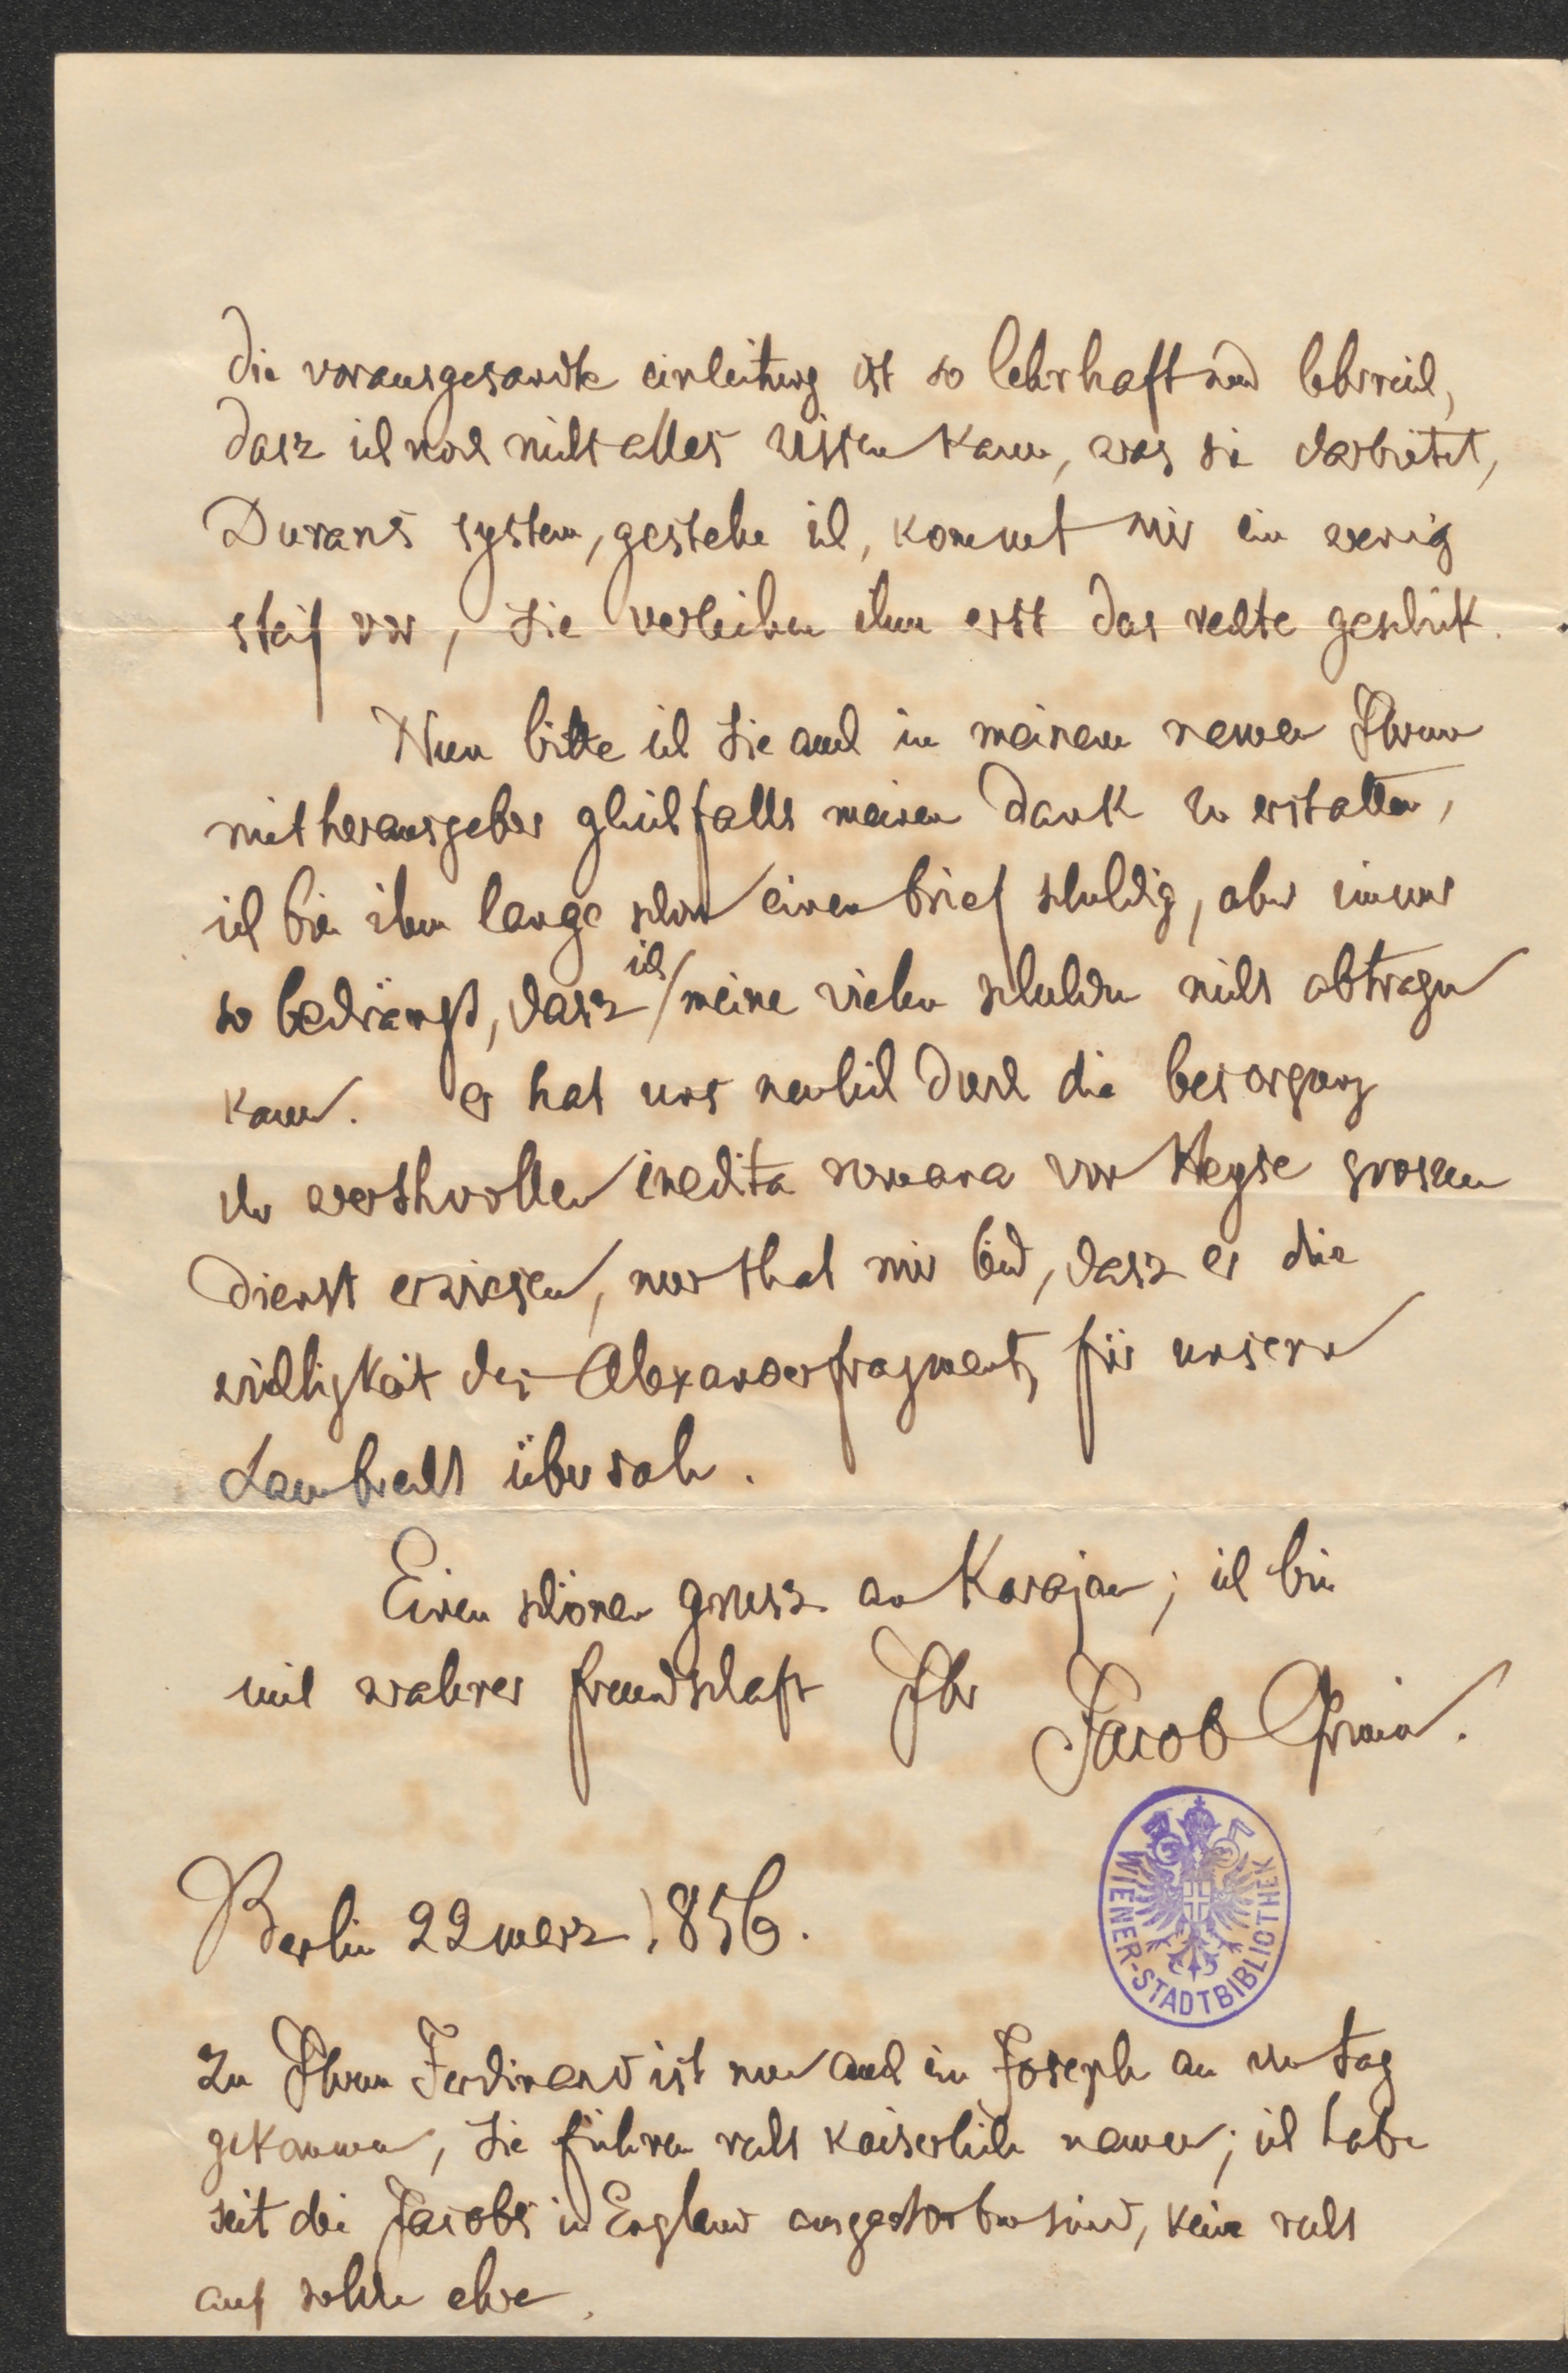 die vorausgesandte einleitung ist so lehrhaft und lehrreich,
dasz ich noch nicht alles wissen kann, was sie darbietet,
Durans system, gestehe ich, kommt mir ein wenig
steif vor, Sie verleihen ihm erst das rechte geschick.
Nun bitte ich Sie auch in meinem namen Ihrem
mitherausgeber gleichfalls meinen dank zu erstatten,
ich bin ihm lange schon einen brief schuldig, aber immer
so bedrängt, dasz ich meine vielen schulden nicht abtragen
kann. er hat uns neulich durch die besorgung
der werthvollen inedita romana von Heyse groszen
dienst erwiesen, nur that mir leid, dasz er die
wichtigkeit des Alexanderfragments für unsern
Lambrecht übersah.
Einen schönen grusz an Karajan; ich bin
mit wahrer freundschaft Ihr Jacob Grimm.
Berlin 22 merz 1856.
WIENER-STADTBIBLIOTHEK
Zu Ihrem Ferdinand ist nun auch ein Joseph an den tag
gekommen, Sie führen recht kaiserliche namen; ich habe
seit die Jacobs in England ausgestorben sind, kein recht
auf solche ehre.